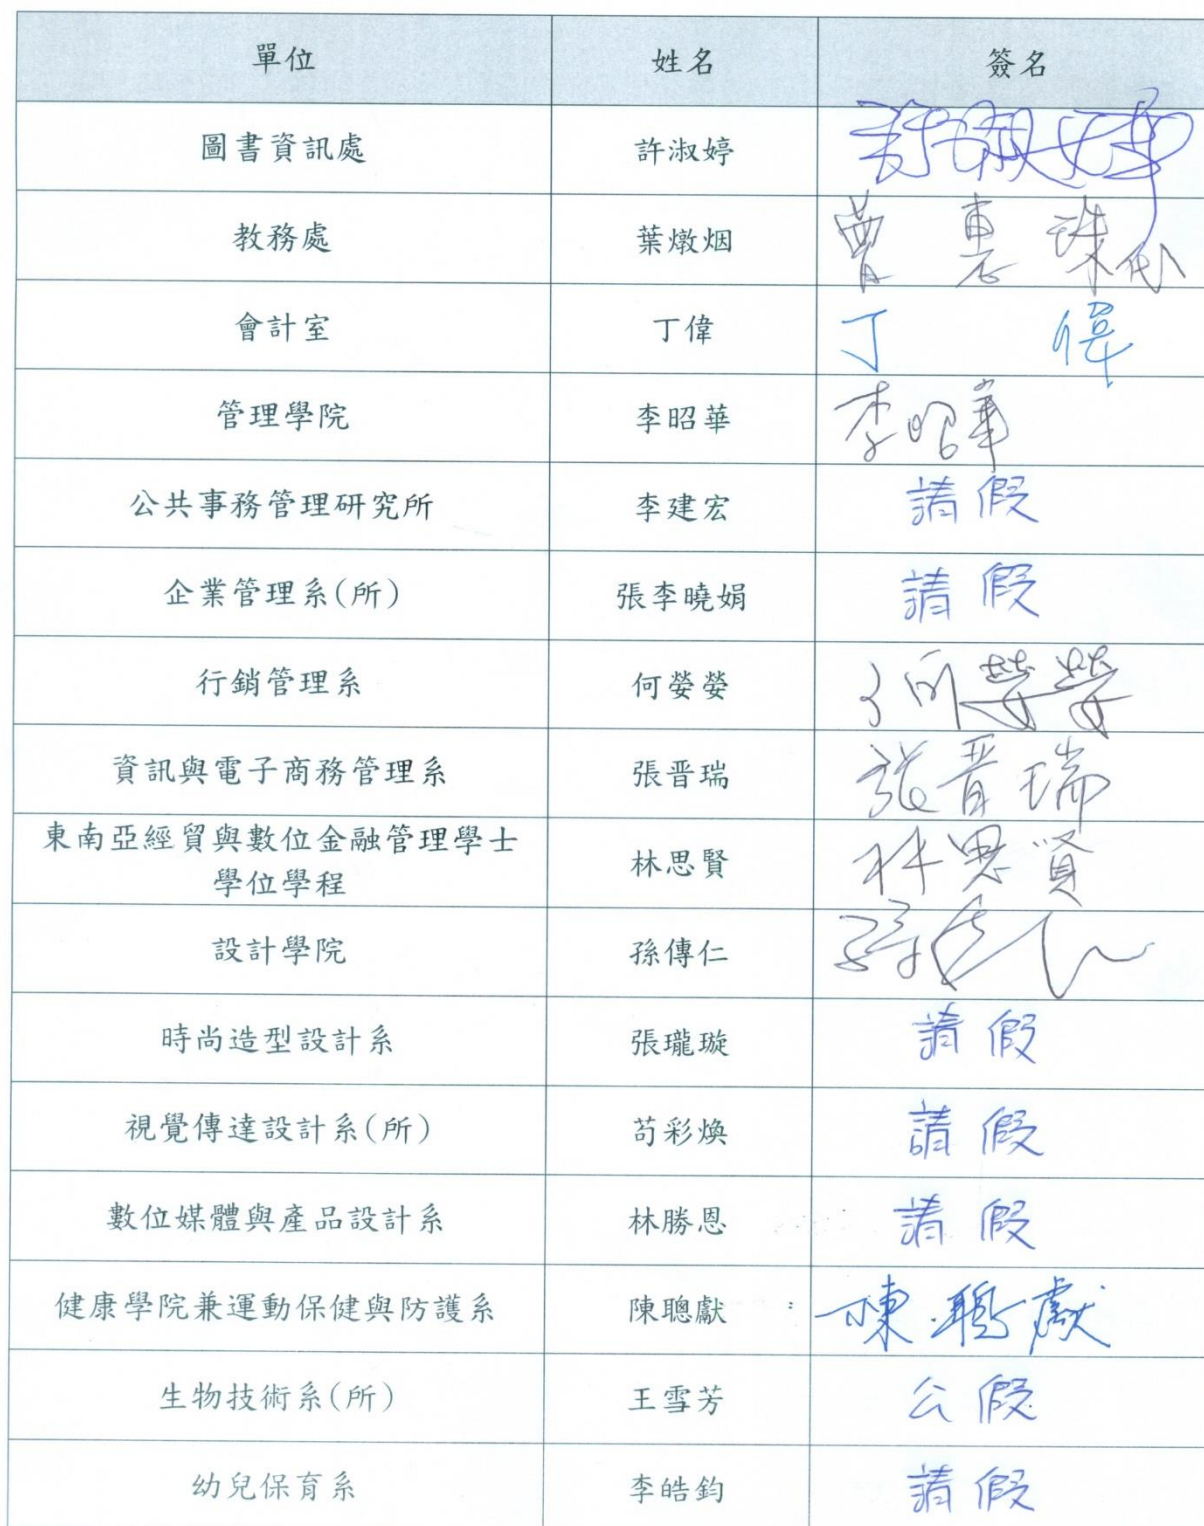 單位 姓名 簽名
圖書資訊處 許淑婷 許淑婷
教務處 葉燉烟 曾惠珠代
會計室 丁偉 丁偉
管理學院 李昭華 李昭華
公共事務管理研究所 李建宏 請假
企業管理系(所) 張李曉娟 請假
行銷管理系 何嫈嫈 何嫈嫈
資訊與電子商務管理系 張晋瑞 張晋瑞
東南亞經貿與數位金融管理學士
學位學程 林思賢 林思賢
設計學院 孫傳仁 孫傳仁
時尚造型設計系 張瓏璇 請假
視覺傳達設計系(所) 苟彩煥 請假
數位媒體與產品設計系 林勝恩 請假
健康學院兼運動保健與防護系 陳聰獻 陳聰獻
生物技術系(所) 王雪芳 公假
幼兒保育系 李皓鈞 請假